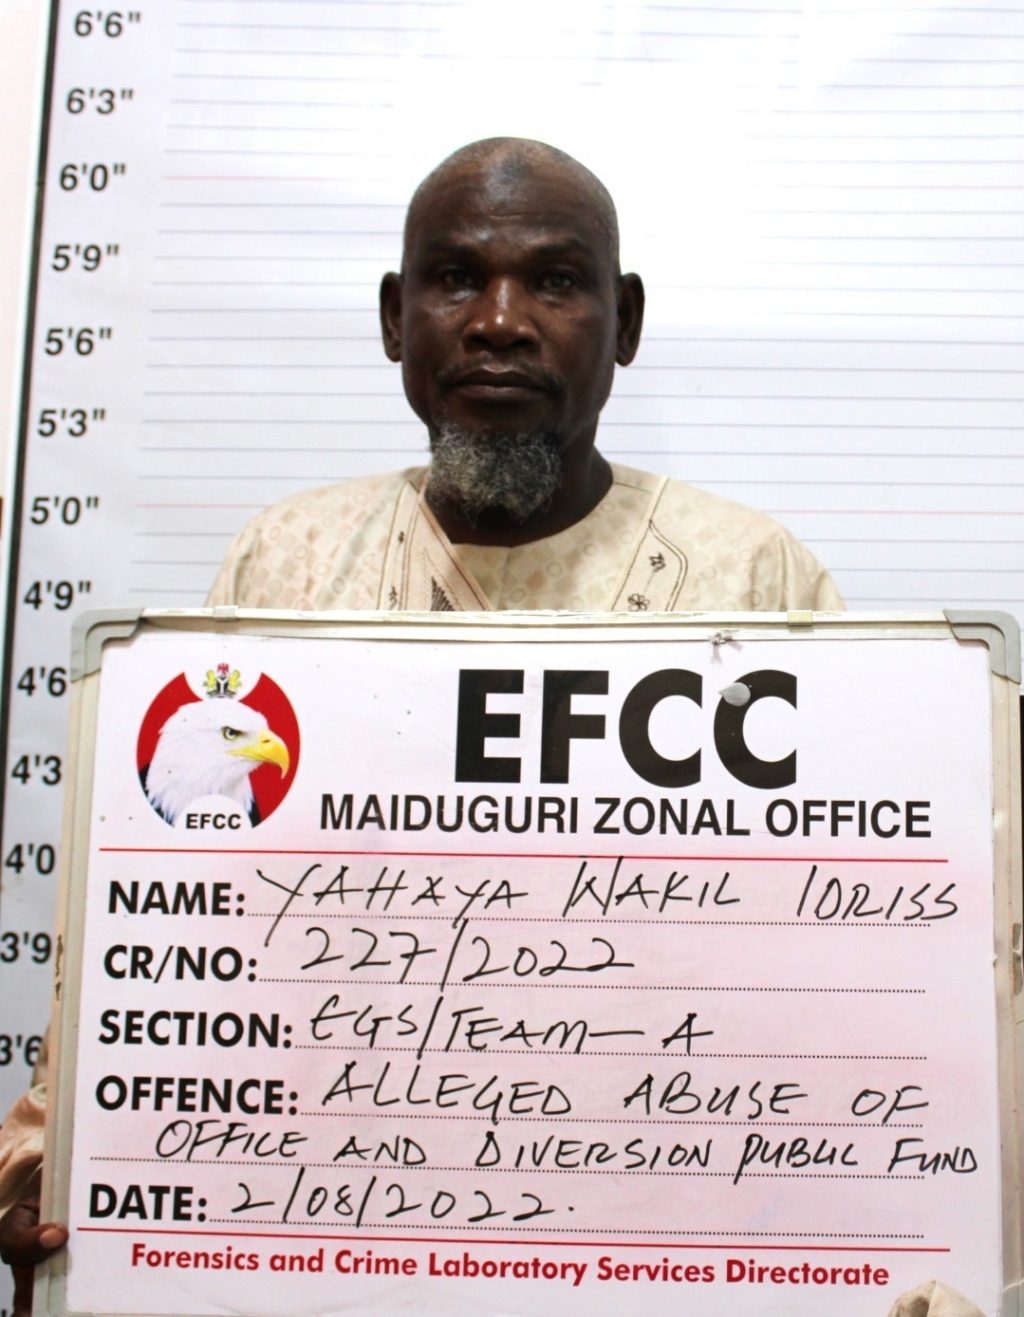 6'6"
6'3"
6'0"
5'9"
5'6"
5'3"
5'0"
4'9"
4'6
4'3
4'0
3'9
3'6
EFCC
EFCC
MAIDUGURI ZONAL OFFICE
NAME: YAHAYA WAKIL IDRISS
CR/NO: 227/2022
SECTION: EGS/TEAM-A
OFFENCE: ALLEGED ABUSE OF
OFFICE AND DIVERSION PUBLIC FUND
DATE: 2/08/2022.
Forensics and Crime Laboratory Services Directorate